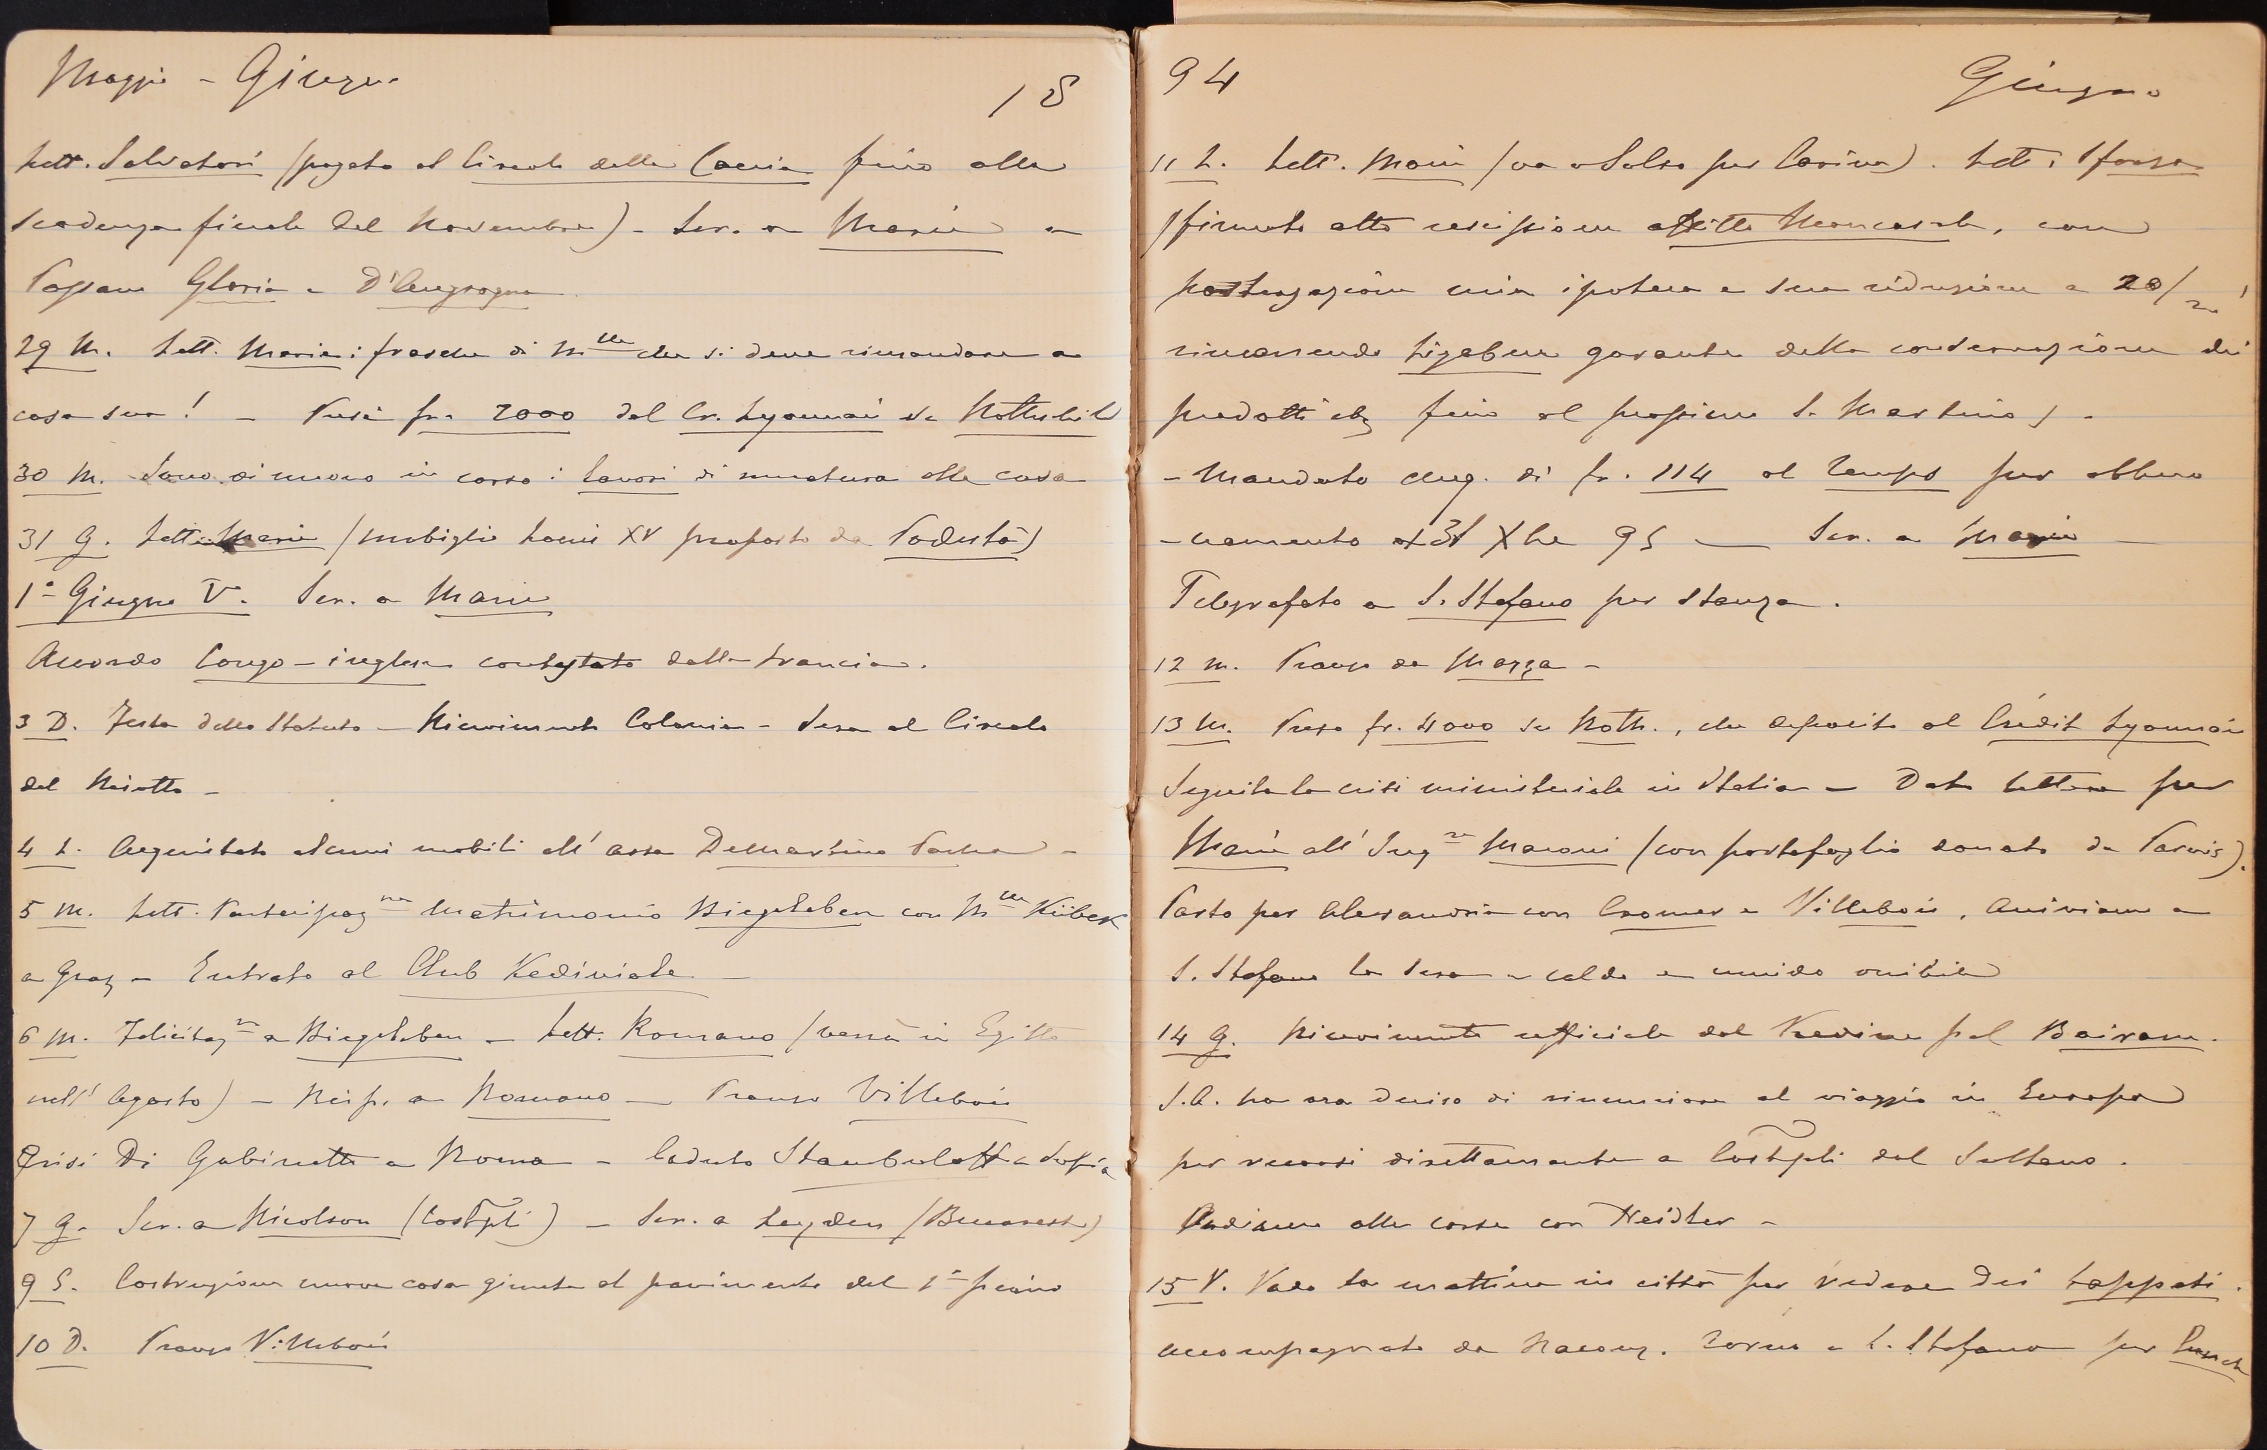 Maggio - Giugno
18
Lett. Salvatori (pagato al Circolo della Caccia fino alla
scadenza finale del Novembre) - Scr. a Maria a
Gloria e D'Angrogna
29 M. Lett. Maria: frasche di Mlle che si deve rimandare a
casa sua! - Presi fr. 2000 dal Cr. Lyonnais su Rothschild
30 M. Sono di nuovo in corso i lavori di muratura alla casa
31 G. Lett. Maria (mobiglio Louis XV proposto da Podestà)
1° Giugno V. Scr. a Maria
Accordo Congo-inglese contestato dalla Francia.
3 D. Festa dello Statuto - Ricevimento Colonia - Sera al Circolo
del Risotto -
4 L. Acquistato alcuni mobili all'asta Demartino Pacha -
5 M. Lett. Partecipazne Matrimonio Biegeleben con Mlle Kübeck
a Graz - Entrato al Club Kediviale -
6 M. Felicitazni a Biegeleben - Lett. Romano (verrà in Egitto
nell'Agosto) - Risp. a Romano - Pranzo Villebois
Crisi Di Gabinetto a Roma - Caduto Stambuloff a Sofia
7 G. Scr. a Nicolson (Costpli) - Scr. a Leyden (Bucarest)
9 S. Costruzione nuova casa giunta al pavimento del 1° piano
10 D. Pranzo Villebois
94
Giugno
11 L. Lett. Maria (va a Salso per Corinna). Lett. Sforza
(firmato atto rescissione affitto Mancasale, con
postergazione mia ipoteca e sua riduzione a 20/m
rimanendo Ligabue garante della conservazione dei
prodotti etz fino al prossimo S. Martino) -
- Mandato Aug. di fr. 114 al Temps per abbuo
-namento al 31 Xbre 95 - Scr. a Maria -
Telegrafato a S. Stefano per stanza.
12 M. Pranzo da Mazza -
13 M. Preso fr. 4000 su Roth., che deposito al Crédit Lyonnais
Seguita la crisi ministeriale in Italia - Data lettera per
Maria all'Ingre Marconi (con portafoglio donato da Parvis).
Parto per Alessandria con Cromer e Villebois. Arriviamo a
S. Stefano la sera - caldo e umido orribile
14 G. Ricevimento ufficiale dal Kedive pel Bairam.
S.A. ha ora deciso di rinunciare al viaggio in Europa
per recarsi direttamente a Costpli dal Sultano.
Andiamo alle corse con Heidler -
15 V. Vado la mattina in città per vedere dei tappeti.
accompagnato da Torno a S. Stefano per lunch